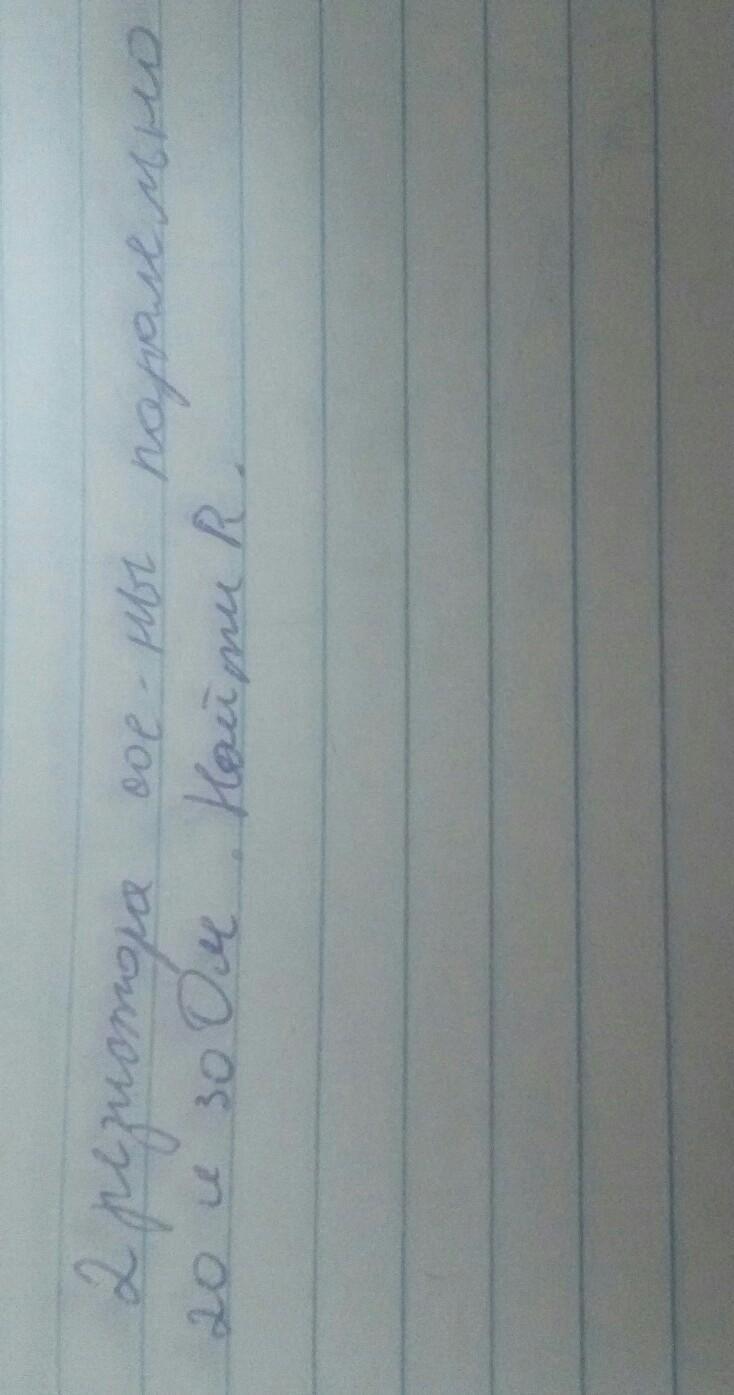 2 резистора сое-ны паралельно
20 и 30 Ом. Найти R.